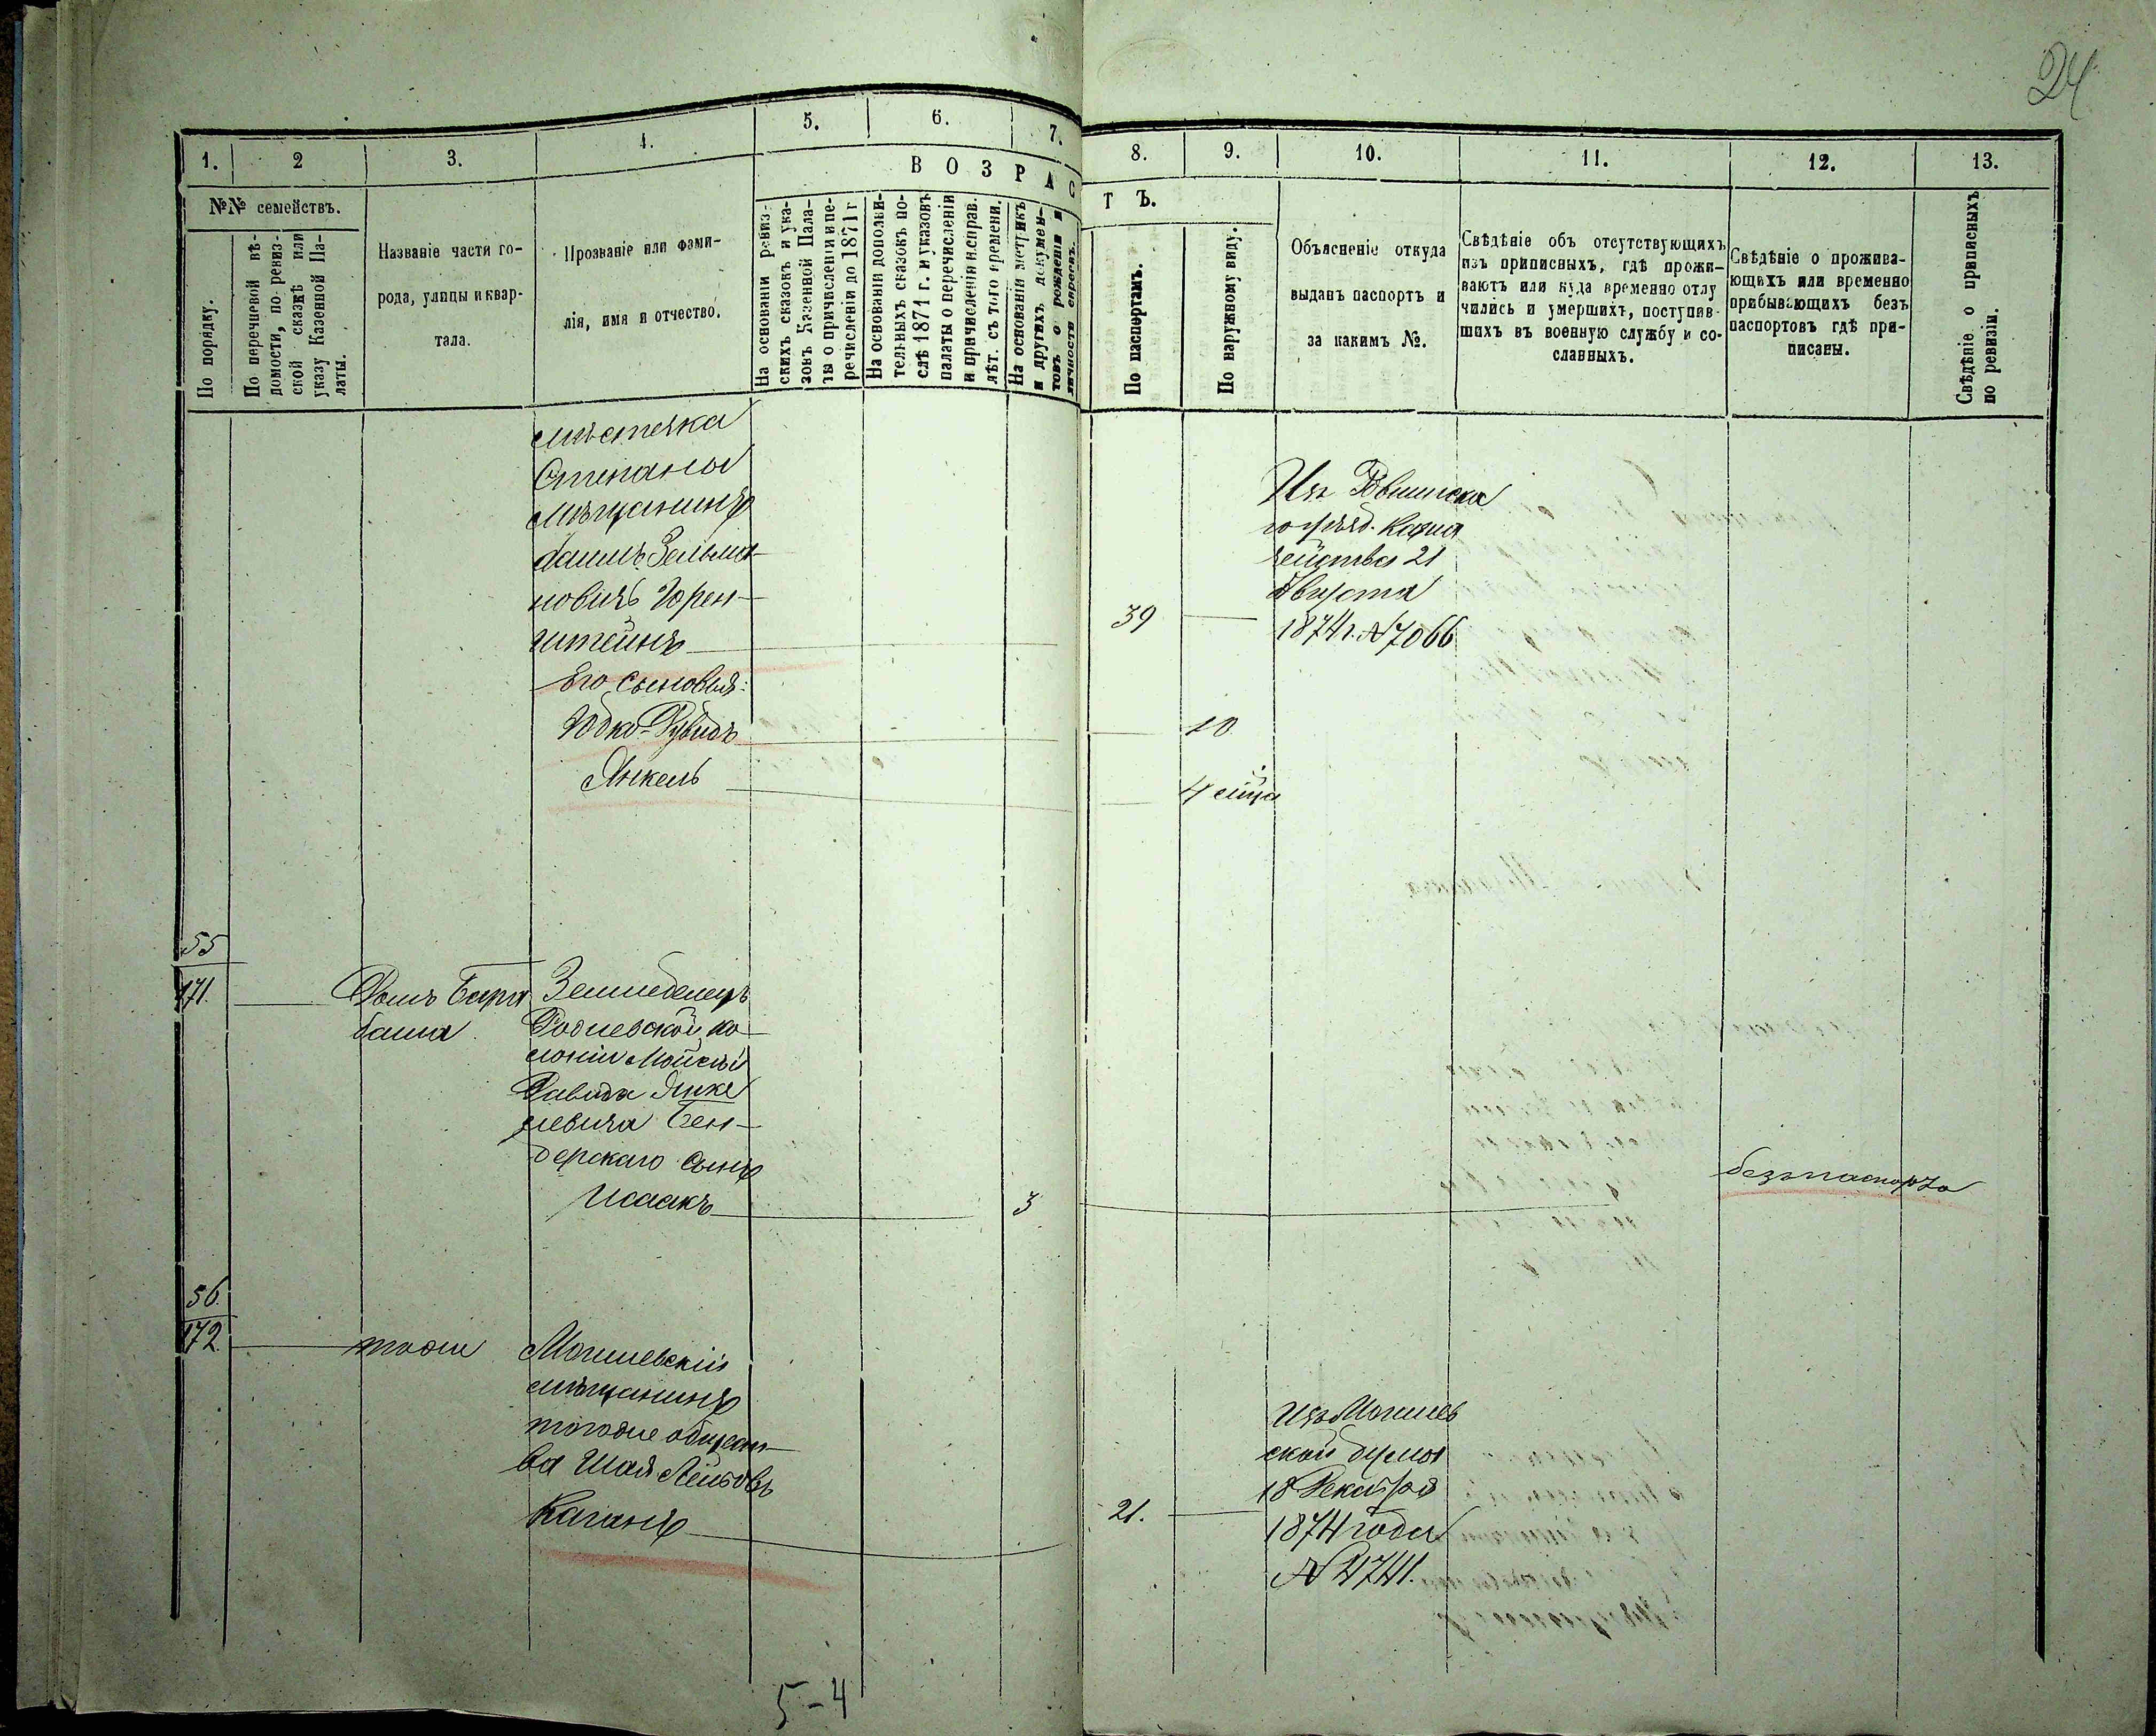 24
1.
2
3.
4.
5.
6.
7.
8.
9.
10.
11.
12.
13.
№№ семействъ.
По порядку.
По перечневой вѣ-
домости, по ревиз-
ской сказкѣ или
указу Казенной Па-
латы.
Названіе части го-
рода, улицы и квар-
тала.
Прозваніе или фами-
лія, имя и отчество.
ВОЗРАСТЪ.
На основаніи ревиз-
скихъ сказокъ и ука-
зовъ Казенной Пала-
ты о причисленіи и пе-
речисленіи до 1871 г
На основаніи дополни-
тельныхъ сказокъ по-
слѣ 1871 г. и указовъ
палаты о перечисленіи
и причисленіи и справ.
лѣт. съ того времени.
На основаніи метрикъ
и другихъ докумен-
товъ о рожденіи и
личности евреевъ.
По паспортамъ.
По наружному виду.
Объясненіе откуда
выданъ паспортъ и
за какимъ №.
Свѣдѣніе объ отсутствующихъ
изъ приписныхъ, гдѣ прожи-
ваютъ или куда временно отлу
чились и умершихъ, поступив-
шихъ въ военную службу и со-
сланныхъ.
Свѣдѣніе о прожива-
ющихъ или временно
прибывающихъ безъ
паспортовъ гдѣ при-
писаны.
Свѣдѣніе о приписныхъ
по ревизіи.
мѣстечка
Степаны
мѣщанинъ
Зельма-
новичъ Юрен-
штейнъ
39
Изъ
Казна
чейства 21
Августа
1874 г. № 7066
Его сыновья:
Юдко-Дувидъ
10.
Янкель
4 мѣца
55
171.
Домъ Бара
баша
Земледелецъ
ко-
лоніи Мойсѣй
Давида Янке
левича Бен-
дерскаго сынъ
Исаакъ
3
безъ паспорта
56.
172.
тоже
Могилевскій
мѣщанинъ
тогоже общест-
ва Шая Лейбовъ
Каганъ
21.
Изъ Могилев
ской думы
18 Декабря
1874 года
№ 4741.
5-4